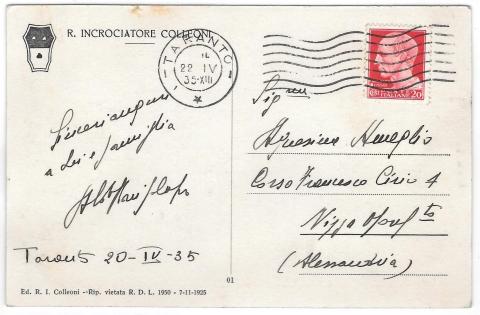 R. INCROCIATORE COLLEONI
TARANTO
22 IV
35·XIII
POSTE ITALIANE 20
Sig
Sinceri auguri
a Lei e famiglia
Taranto 20-IV-35
Corso Francesco Cirio 4
Nizza Monf to
(Alessandria)
01
Ed. R. I. Colleoni - Rip. vietata R. D. L. 1950 - 7-11-1925